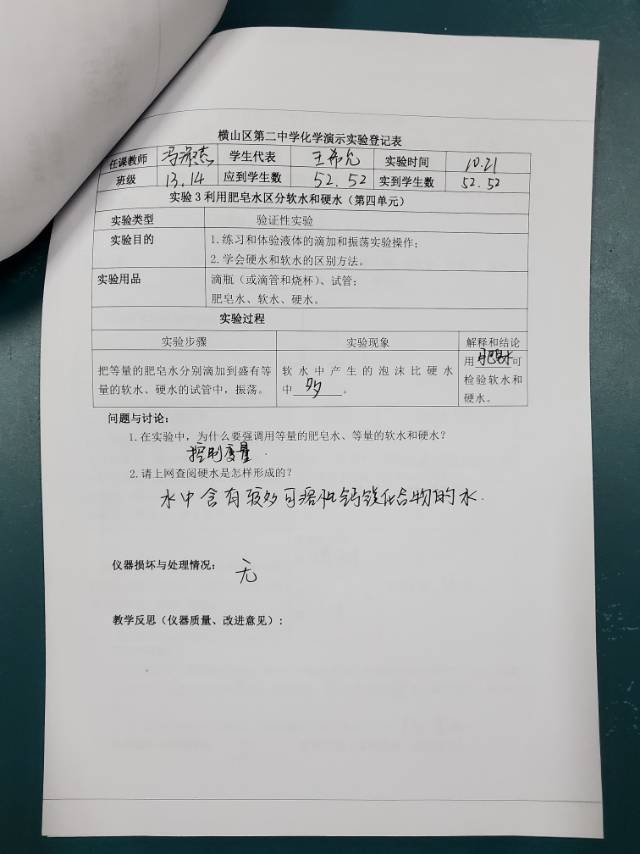 横山区第二中学化学演示实验登记表
任课教师 学生代表 王希允 实验时间 10.21
班级 13,14 应到学生数 52,52 实到学生数 52.52
实验 3 利用肥皂水区分软水和硬水（第四单元）
实验类型 验证性实验
实验目的 1.练习和体验液体的滴加和振荡实验操作；
2.学会硬水和软水的区别方法。
实验用品 滴瓶（或滴管和烧杯）、试管；
肥皂水、软水、硬水。
实验过程
实验步骤 实验现象 解释和结论
把等量的肥皂水分别滴加到盛有等量的软水、硬水的试管中，振荡。
软水中产生的泡沫比硬水中 多 。
用 肥皂水 可
检验软水和
硬水。
问题与讨论：
1.在实验中，为什么要强调用等量的肥皂水、等量的软水和硬水？
控制变量.
2.请上网查阅硬水是怎样形成的？
水中含有较多可溶性钙镁化合物的水.
仪器损坏与处理情况： 无
教学反思（仪器质量、改进意见）：